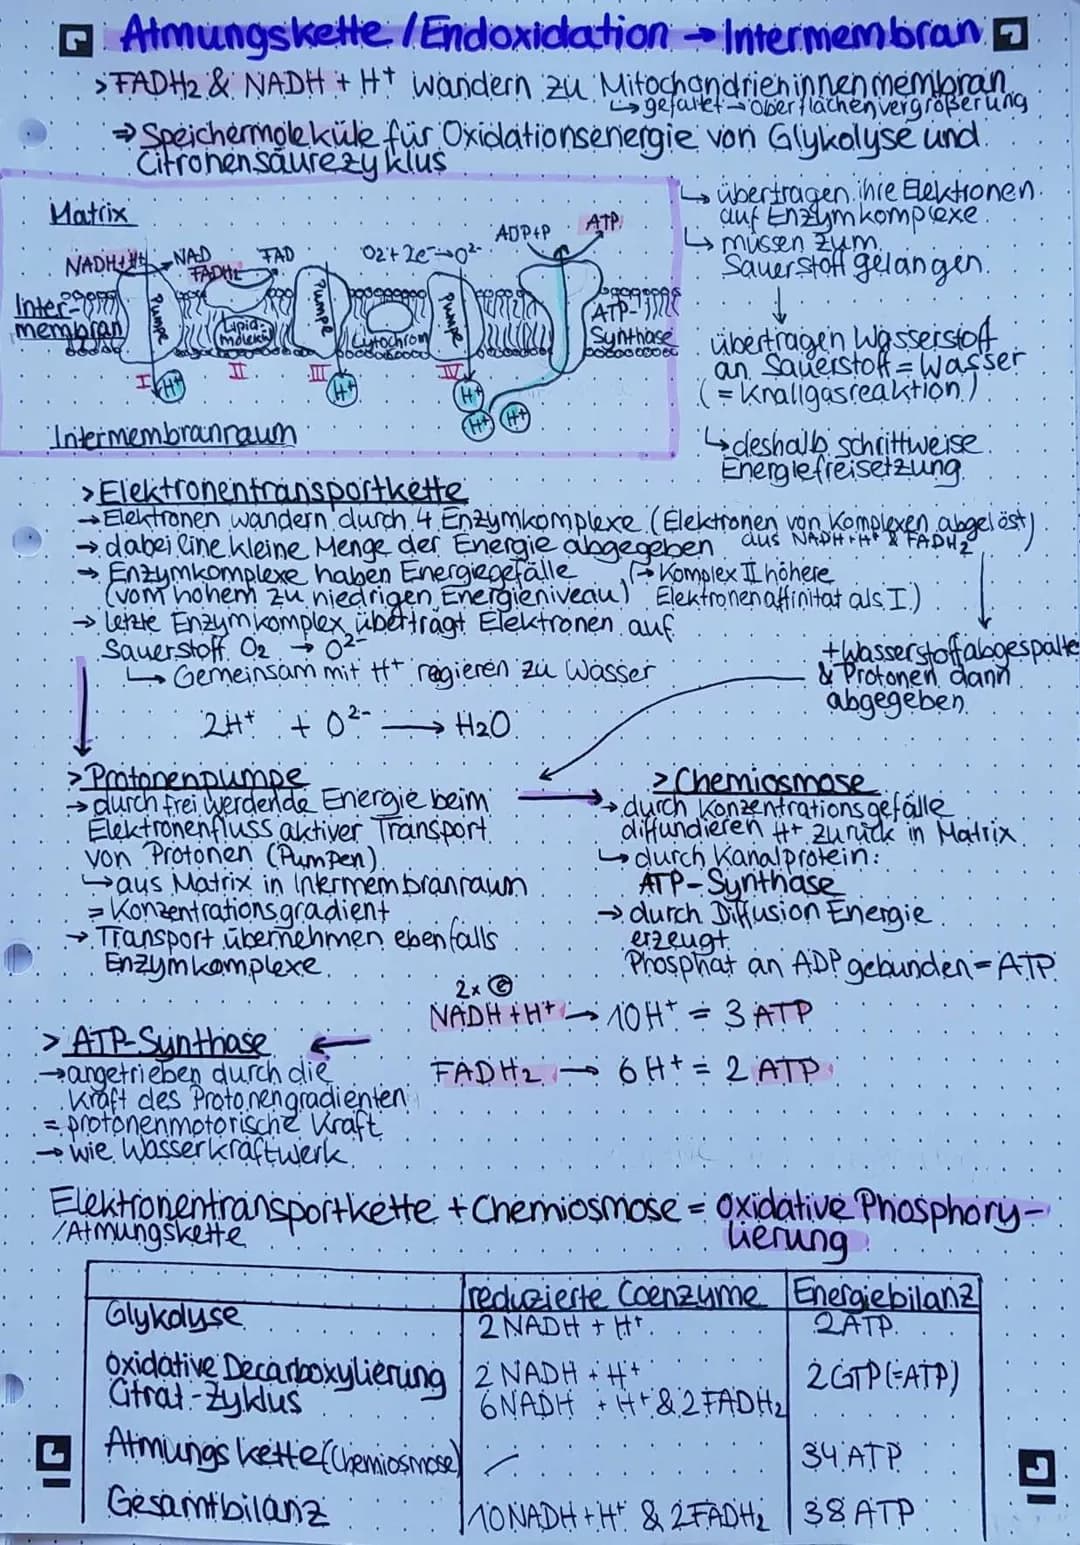 Atmungskette/Endoxidation → Intermembran
> FADH2 & NADH + H+ wandern zu Mitochondrieninnenmembran
↳ gefaltet → Oberflächenvergrößerung
⇒ Speichermoleküle für Oxidationsenergie von Glykolyse und
Citronensäurezyklus
Matrix
NADH+H+ → NAD
FADH2
FAD
O2 + 2e- → O2-
ADP+P
ATP
Inter-
membran
Pumpe
Lipid-
molekül
Pumpe
Cytochrom
Pumpe
ATP-
Synthase
I
II
III
IV
H+
H+
H+
H+
H+
Intermembranraum
↳ übertragen ihre Elektronen
auf Enzymkomplexe
↳ müssen zum
Sauerstoff gelangen
↓
übertragen Wasserstoff
an Sauerstoff = Wasser
(= Knallgasreaktion)
↳ deshalb schrittweise
Energiefreisetzung
> Elektronentransportkette
→ Elektronen wandern durch 4 Enzymkomplexe (Elektronen von Komplexen abgelöst)
aus NADH+H+ & FADH2
→ dabei eine kleine Menge der Energie abgegeben
→ Enzymkomplexe haben Energiegefälle
(vom hohem zu niedrigen Energieniveau)
→ Komplex II höhere
Elektronenaffinität als I)
→ letzte Enzymkomplex überträgt Elektronen auf
Sauerstoff O2 → O2-
↳ Gemeinsam mit H+ regieren zu Wasser
+ Wasserstoff abgespalte
& Protonen dann
abgegeben
2H+ + O2- → H2O
> Protonenpumpe
→ durch frei werdende Energie beim
Elektronenfluss aktiver Transport
von Protonen (Pumpen)
↳ aus Matrix in Intermembranraum
= Konzentrationsgradient
→ Transport übernehmen ebenfalls
Enzymkomplexe
> Chemiosmose
→ durch Konzentrationsgefälle
diffundieren H+ zurück in Matrix
↳ durch Kanalprotein:
ATP-Synthase
→ durch Diffusion Energie
erzeugt
Phosphat an ADP gebunden = ATP
2x e
NADH + H+ → 10H+ = 3 ATP
FADH2 → 6H+ = 2 ATP
> ATP-Synthase
→ angetrieben durch die
Kraft des Protonengradienten
= protonenmotorische Kraft
→ wie Wasserkraftwerk
Elektronentransportkette + Chemiosmose = oxidative Phosphory-
/Atmungskette
lierung
reduzierte Coenzyme Energiebilanz
Glykolyse 2 NADH + H+ 2 ATP
oxidative Decarboxylierung 2 NADH + H+ 2 GTP (=ATP)
Citrat-Zyklus 6 NADH + H+ & 2 FADH2
Atmungskette (Chemiosmose) / 34 ATP
Gesamtbilanz 10 NADH + H+ & 2 FADH2 38 ATP